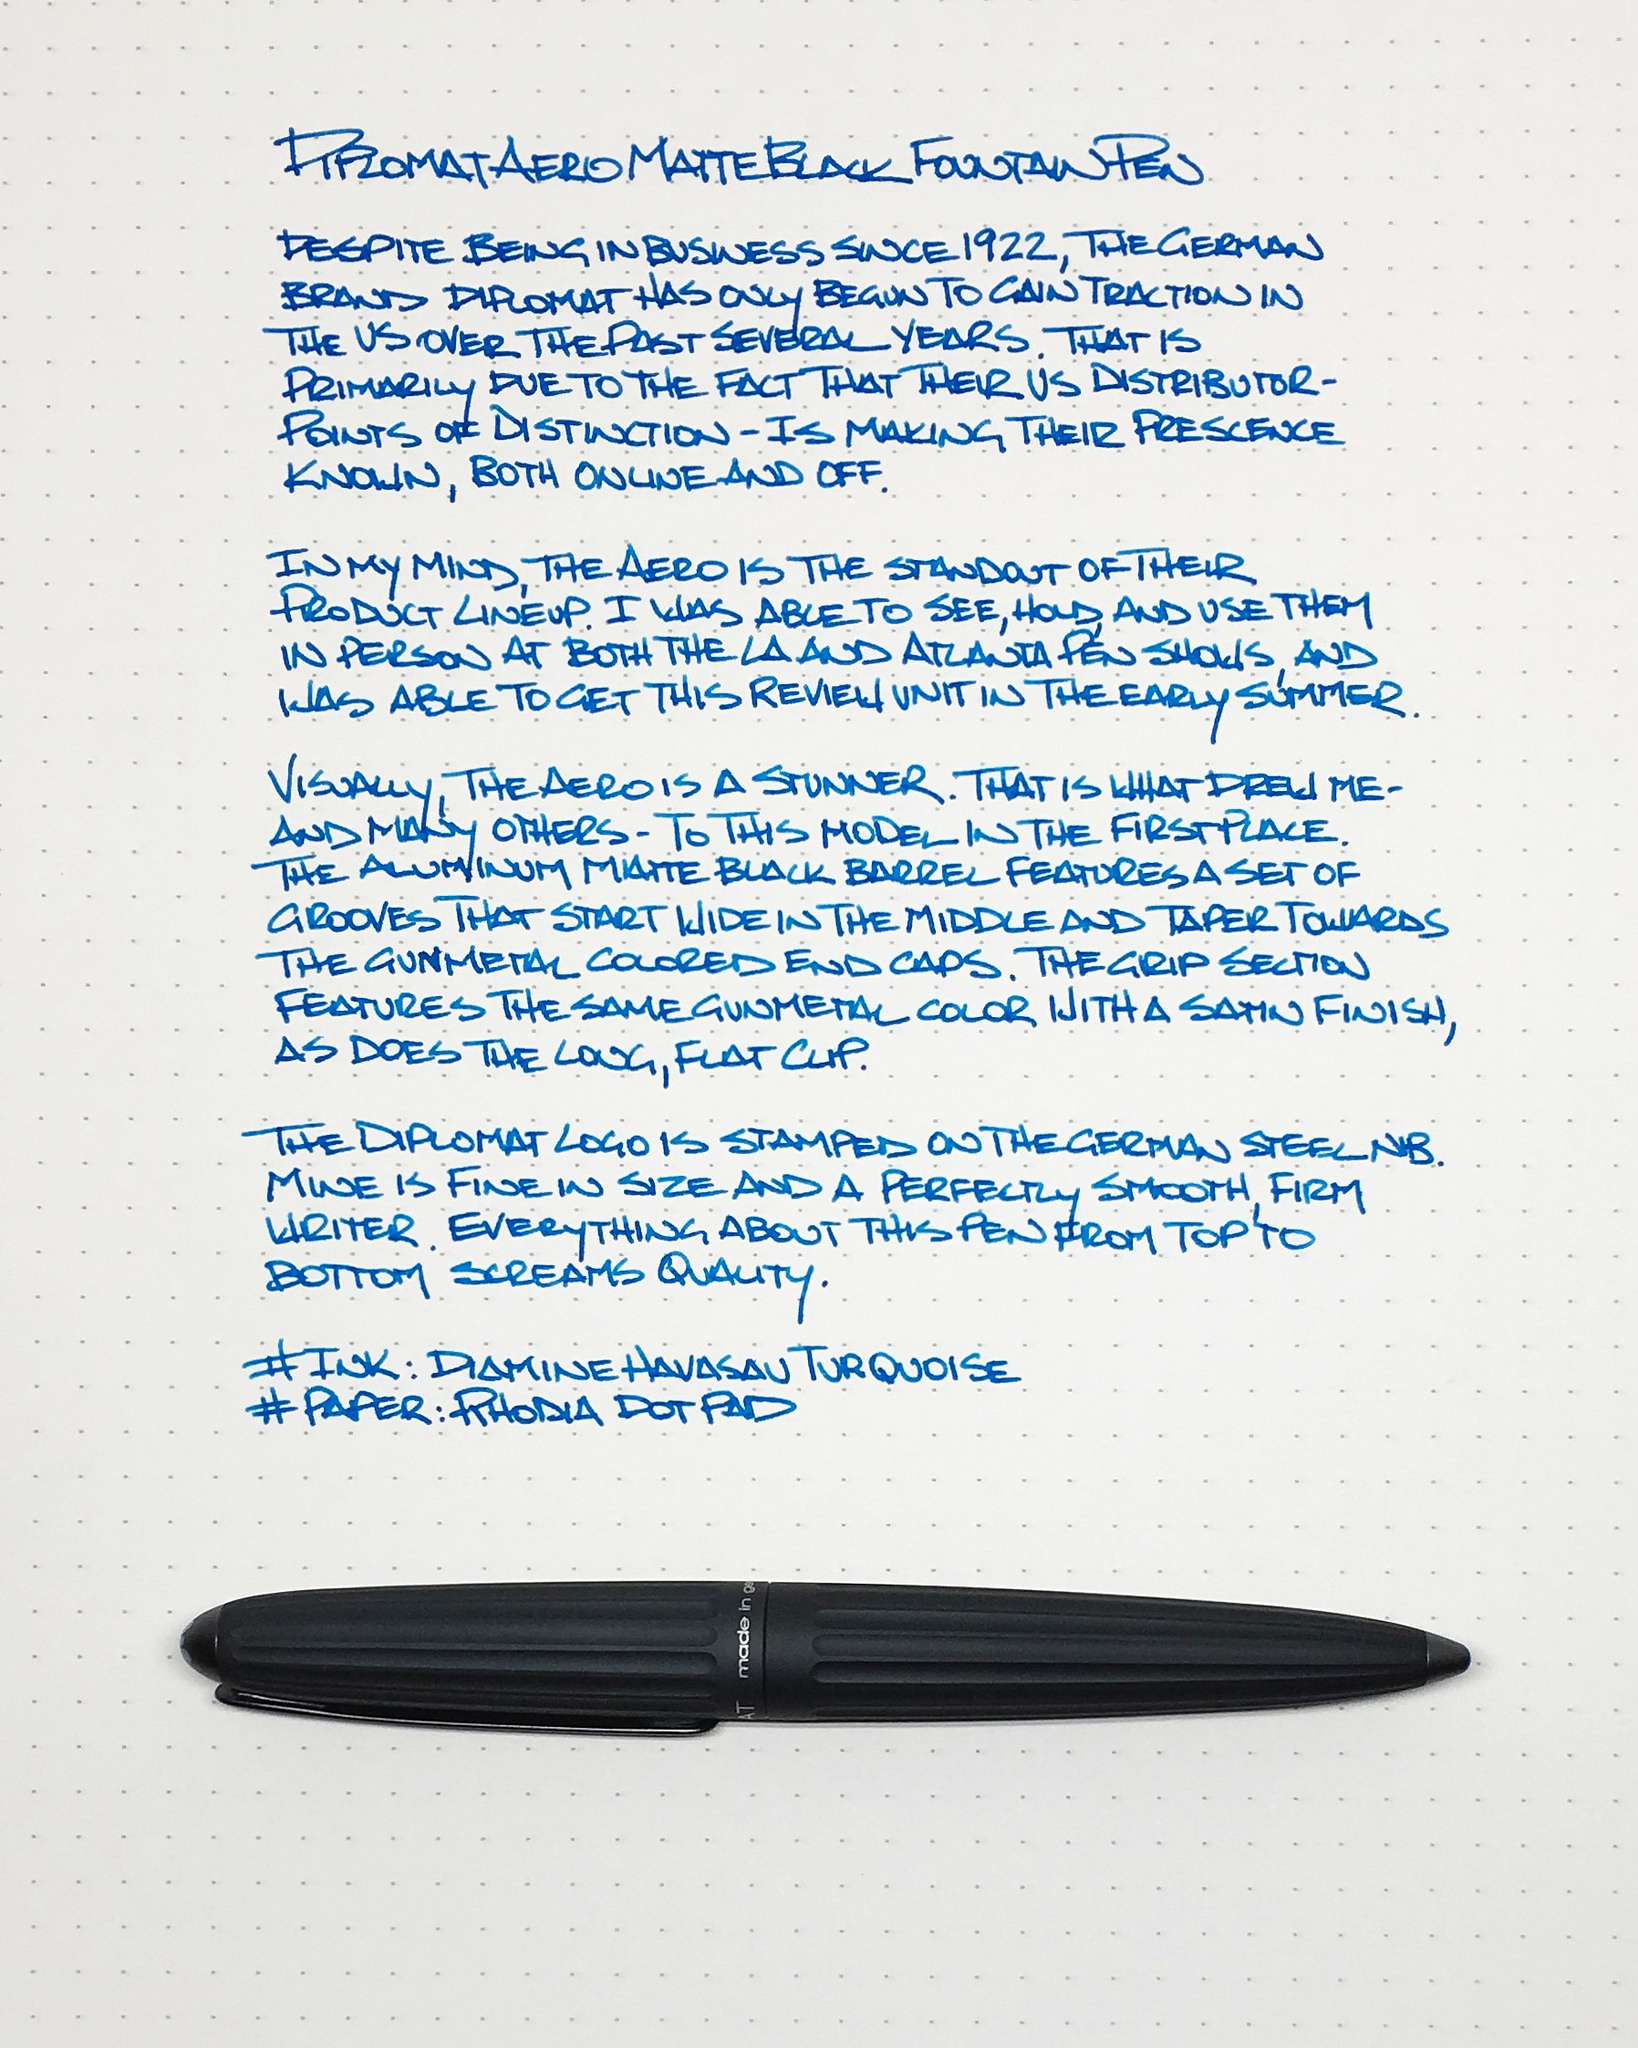 DIPLOMAT AERO MATTE BLACK FOUNTAIN PEN
DESPITE BEING IN BUSINESS SINCE 1922, THE GERMAN
BRAND DIPLOMAT HAS ONLY BEGUN TO GAIN TRACTION IN
THE US OVER THE PAST SEVERAL YEARS. THAT IS
PRIMARILY DUE TO THE FACT THAT THEIR US DISTRIBUTOR-
POINTS OF DISTINCTION - IS MAKING THEIR PRESCENCE
KNOWN, BOTH ONLINE AND OFF.
IN MY MIND, THE AERO IS THE STANDOUT OF THEIR
PRODUCT LINEUP. I WAS ABLE TO SEE, HOLD, AND USE THEM
IN PERSON AT BOTH THE LA AND ATLANTA PEN SHOWS, AND
WAS ABLE TO GET THIS REVIEW UNIT IN THE EARLY SUMMER.
VISUALLY, THE AERO IS A STUNNER. THAT IS WHAT DREW ME-
AND MANY OTHERS - TO THIS MODEL IN THE FIRST PLACE.
THE ALUMINUM MATTE BLACK BARREL FEATURES A SET OF
GROOVES THAT START WIDE IN THE MIDDLE AND TAPER TOWARDS
THE GUNMETAL COLORED END CAPS. THE GRIP SECTION
FEATURES THE SAME GUNMETAL COLOR WITH A SATIN FINISH,
AS DOES THE LONG, FLAT CLIP.
THE DIPLOMAT LOGO IS STAMPED ON THE GERMAN STEEL NIB.
MINE IS FINE IN SIZE AND A PERFECTLY SMOOTH, FIRM
WRITER. EVERYTHING ABOUT THIS PEN FROM TOP TO
BOTTOM SCREAMS QUALITY.
# INK: DIAMINE HAVASAU TURQUOISE
# PAPER: RHODIA DOT PAD
AT made in ge